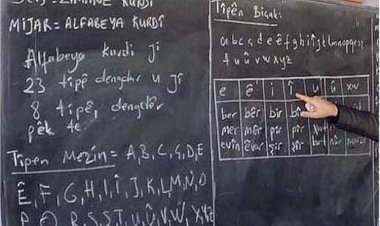 ZIMANÊ KURDÎ
MIJAR = ALFABEYA KURDÎ
Alfabeya kurdi ji
23 tipê dengdar u ji
8 tipê, dengdêr
pêk tê
Tîpên Mezin = A, B, C, Ç, D, E
Ê, F, G, H, I, Î, J, K, L, M, N, O
P, Q, R, S, Ş, T, U, Û, V, W, X, Y, Z
Tîpên Biçûk:
a b c ç d e ê f g h i î j k l m n o p q r s ş
t u û v w x y z
e ê i î u û xw
ber bêr bir bîr
mer mêr pir pîr
evîn êvar şir şîr